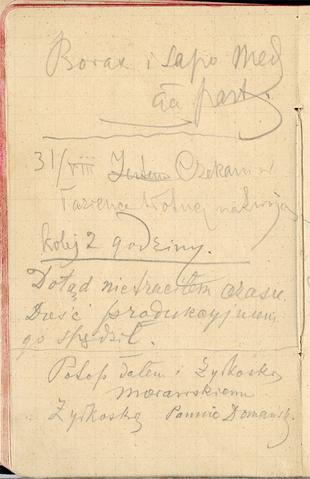 Borax i Sapo Med
aa part.
31/VIII Jestem Czekam w
Łazience Wolnej na swoją
kolej 2 godziny.
Dotąd nie traciłem czasu.
Dość produkcyjnie
go spędził.
Potop dałem i Żytkoską
Morawskiemu
Żytkoską Pannie Domańsk.